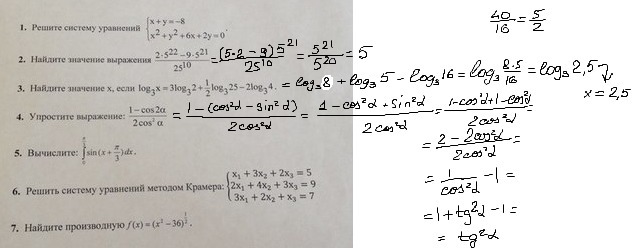 40/16 = 5/2
1. Решите систему уравнений { x + y = −8
x² + y² + 6x + 2y = 0 .
2. Найдите значение выражения (2·5²² − 9·5²¹)/25¹⁰ = (5·2 − 9)5²¹/25¹⁰ = 5²¹/5²⁰ = 5
3. Найдите значение x, если log₃x = 3log₃2 + ½log₃25 − 2log₃4. = log₃8 + log₃5 − log₃16 = log₃ 8·5/16 = log₃2,5
x = 2,5
4. Упростите выражение: (1 − cos2α)/(2cos²α) = (1 − (cos²α − sin²α))/(2cos²α) = (1 − cos²α + sin²α)/(2cos²α) = (1 − cos²α + 1 − cos²α)/(2cos²α) =
= (2 − 2cos²α)/(2cos²α) =
= 1/cos²α − 1 =
= 1 + tg²α − 1 =
= tg²α
5. Вычислите: ∫ sin(x + π/3)dx .
6. Решить систему уравнений методом Крамера: { x₁ + 3x₂ + 2x₃ = 5
2x₁ + 4x₂ + 3x₃ = 9
3x₁ + 2x₂ + x₃ = 7
7. Найдите производную f(x) = (x² − 36)^½ .